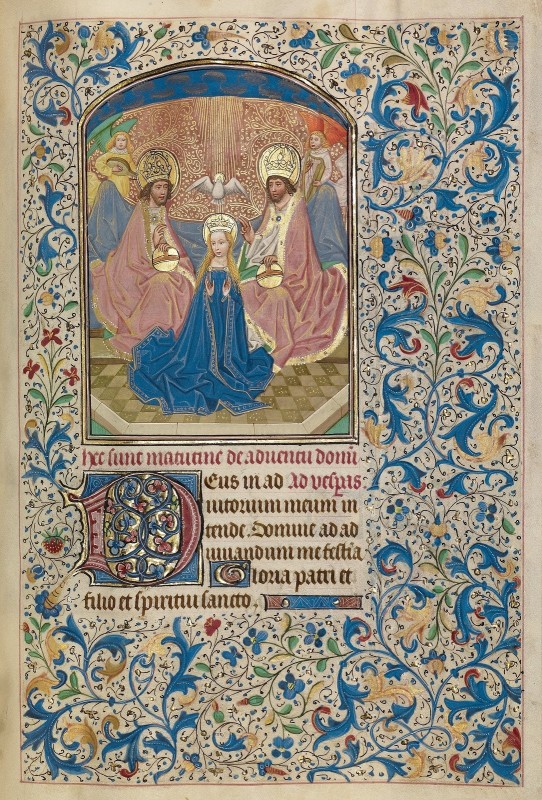 Hec sunt matutine de adventu domi
Deus in ad Ad vesp̄as
iutorium meum in
tende. Domine ad ad
iuuandum me festīa
Gloria patri et
filio et spiritui sancto.